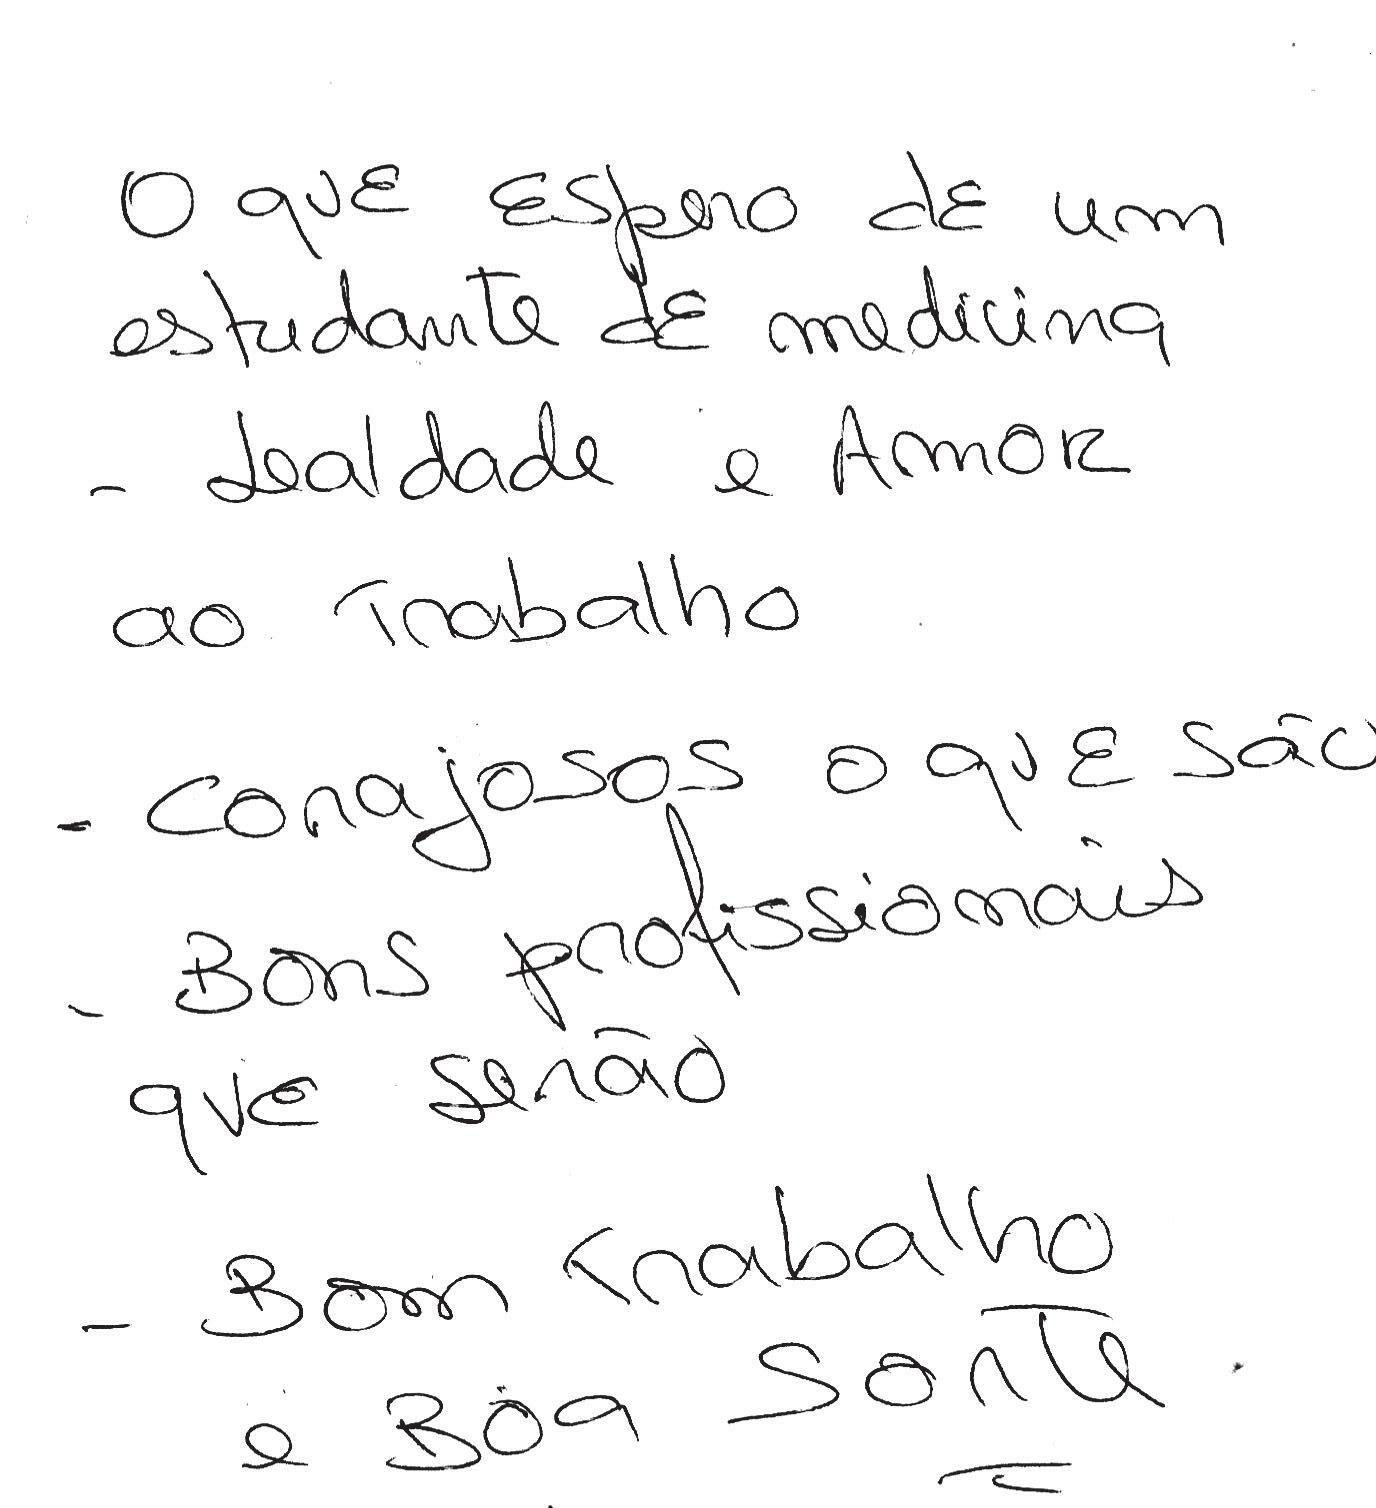 O que espero de um
estudante de medicina
- Lealdade e Amor
ao Trabalho
- Corajosos o que são
- Bons profissionais
que serão
- Bom Trabalho
e Boa Sorte